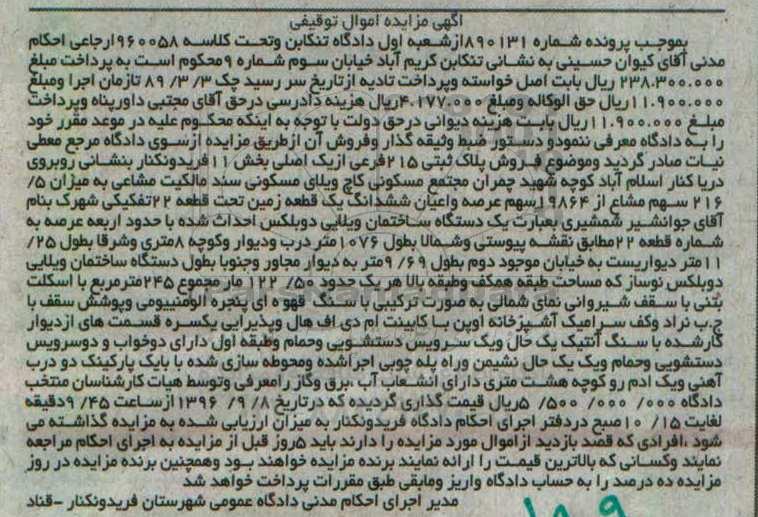 آگهی مزایده اموال توقیفی
بموجب پرونده شماره ۸۹۰۱۳۱ازشعبه اول دادگاه تنکابن وتحت کلاسه ۹۶۰۰۵۸ارجاعی احکام
مدنی آقای کیوان حسینی به نشانی تنکابن کریم آباد خیابان سوم شماره ۹محکوم است به پرداخت مبلغ
۲۳۸.۳۰۰.۰۰۰ ریال بابت اصل خواسته وپرداخت تادیه ازتاریخ سر رسید چک ۳/ ۳/ ۸۹ تازمان اجرا ومبلغ
۱۱.۹۰۰.۰۰۰ریال حق الوکاله ومبلغ ۴.۱۷۷.۰۰۰ریال هزینه دادرسی درحق آقای مجتبی داورپناه وپرداخت
مبلغ ۱۱.۹۰۰.۰۰۰ریال بابت هزینه دیوانی درحق دولت با توجه به اینکه محکوم علیه در موعد مقرر خود
را به دادگاه معرفی ننمودو دستور ضبط وثیقه گذار وفروش آن ازطریق مزایده ازسوی دادگاه مرجع معطی
نیات صادر گردید وموضوع فروش پلاک ثبتی ۲۱۵فرعی ازیک اصلی بخش ۱۱فریدونکنار بنشانی روبروی
دریا کنار اسلام آباد کوچه شهید چمران مجتمع مسکونی کاج ویلای مسکونی سند مالکیت مشاعی به میزان ۵/
۲۱۶ سهم مشاع از ۱۹۸۶۴سهم عرصه واعیان ششدانگ یک قطعه زمین تحت قطعه ۲۲تفکیکی شهرک بنام
آقای جوانشیر شمشیری بعبارت یک دستگاه ساختمان ویلایی دوبلکس احداث شده با حدود اربعه عرصه به
شماره قطعه ۲۲مطابق نقشه پیوستی وشمالا بطول ۱۰۷۶متر درب ودیوار وکوچه ۸متری وشرقا بطول ۲۵/
۱۱متر دیواریست به خیابان موجود دوم بطول ۶۹/ ۹متر به دیوار مجاور وجنوبا بطول دستگاه ساختمان ویلایی
دوبلکس نوساز که مساحت طبقه همکف وطبقه بالا هر یک حدود ۵۰/ ۱۲۲ مار مجموع ۲۴۵مترمربع با اسکلت
بتنی با سقف شیروانی نمای شمالی به صورت ترکیبی با سنگ قهوه ای پنجره آلومنییومی وپوشش سقف با
چ.ب نراد وکف سرامیک آشپزخانه اوپن با کابینت ام دی اف هال وپذیرایی یکسره قسمت های ازدیوار
کارشده با سنگ آنتیک یک حال ویک سرویس دستشویی وحمام وطبقه اول دارای دوخواب و دوسرویس
دستشویی وحمام ویک یک حال نشیمن وراه پله چوبی اجراشده ومحوطه سازی شده با بایک پارکینک دو درب
آهنی ویک ادم رو کوچه هشت متری دارای انشعاب آب ،برق وگاز رامعرفی وتوسط هیات کارشناسان منتخب
دادگاه ۰۰۰/ ۰۰۰/ ۵۰۰/ ۵ریال قیمت گذاری گردیده که درتاریخ ۸/ ۹/ ۱۳۹۶ ازساعت ۴۵/ ۹دقیقه
لغایت ۱۵/ ۱۰صبح دردفتر اجرای احکام دادگاه فریدونکنار به میزان ارزیابی شده به مزایده گذاشته می
شود ،افرادی که قصد بازدید ازاموال مورد مزایده را دارند باید ۵روز قبل از مزایده به اجرای احکام مراجعه
نمایند وکسانی که بالاترین قیمت را ارائه نمایند برنده مزایده خواهند بود وهمچنین برنده مزایده در روز
مزایده ده درصد را به حساب دادگاه واریز ومابقی طبق مقررات پرداخت خواهد شد
مدیر اجرای احکام مدنی دادگاه عمومی شهرستان فریدونکنار –قناد